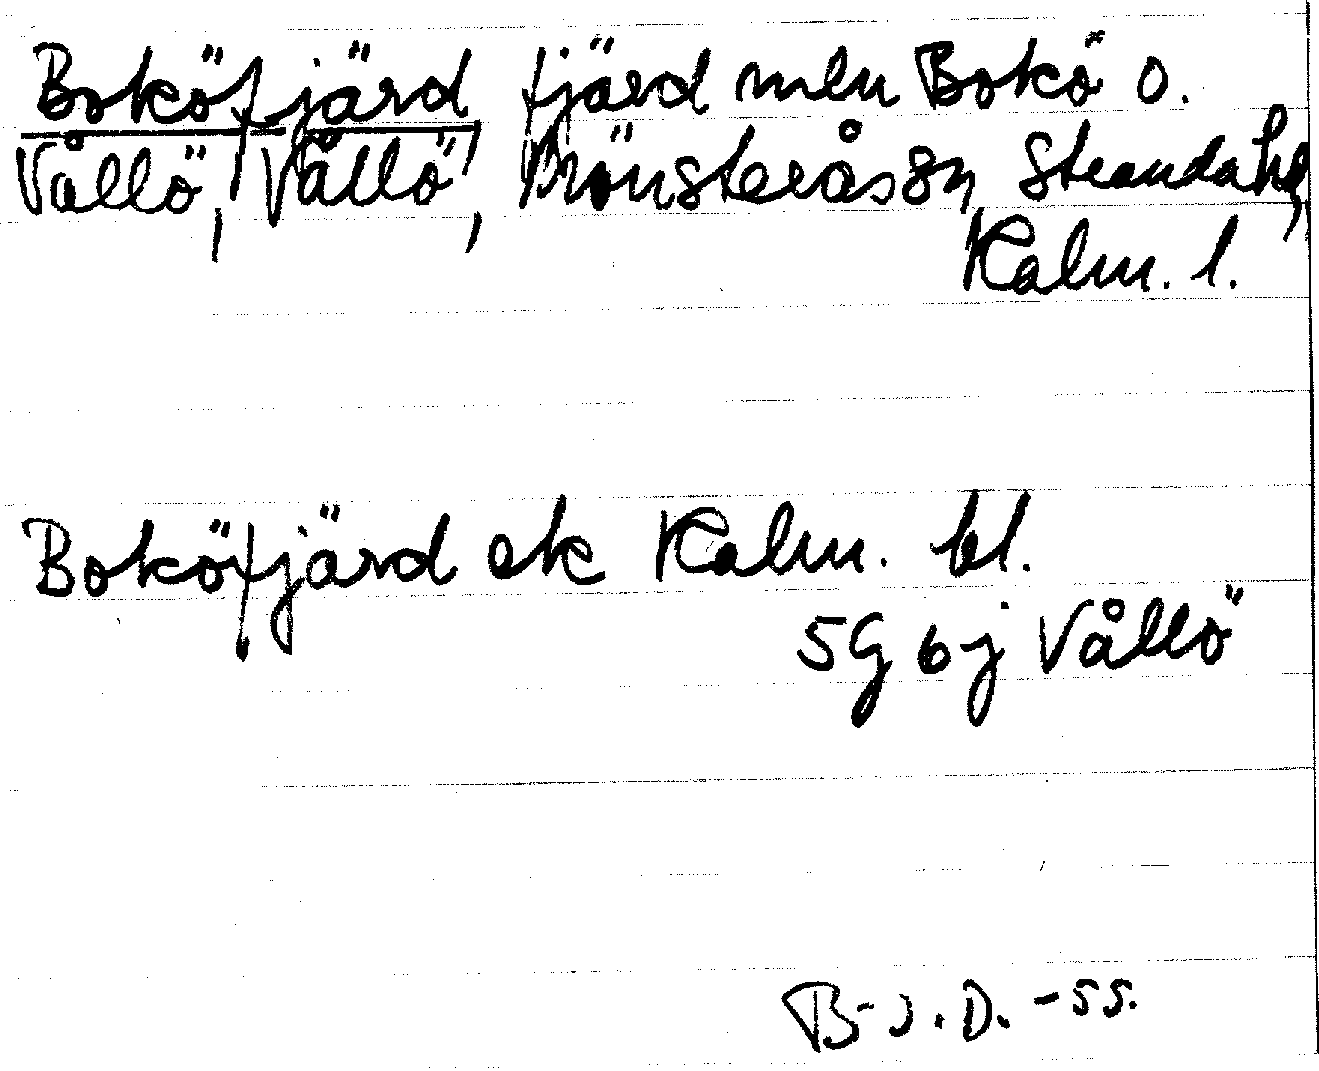 Boköfjärd, fjärd mln Bokö o.
Vållö, Vållö, Mönsterås sn, Stranda hd,
Kalm. l.
Boköfjärd ek Kalm. bl.
5G 6j Vållö
B-J. D. -55.